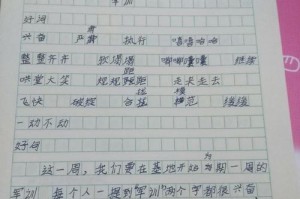 军训
好词
兴奋 严肃 执行 嘻嘻哈哈
整整齐齐 嘟嘟囔囔 继续
哄堂大笑 规规矩矩 走来走去
飞快 破绽 模范 缓缓
一动不动
好句
这一周，我们要在基地开始为期一周的
军训，每个人一提到“军训”两个字都很兴奋